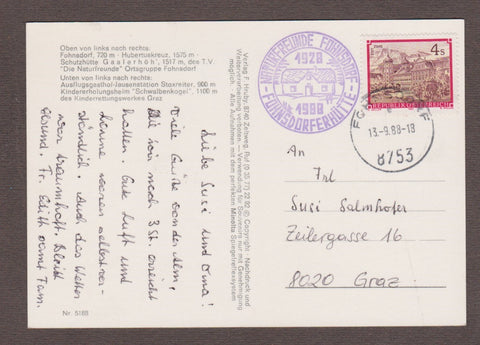 Oben von links nach rechts:
Fohnsdorf, 720 m - Hubertuskreuz, 1575 m -
Schutzhütte Gaalerhöh', 1517 m, des T.V.
"Die Naturfreunde" Ortsgruppe Fohnsdorf
Unten von links nach rechts:
Ausflugsgasthof-Jausenstation Storxmier, 900 m
Kindererholungsheim "Schwalbenkogel", 1100 m
des Kinderrettungswerkes Graz
Liebe Susi und Oma!
Viele Grüße von der Alm,
die wir nach 3 St. erreicht
hatten. Gute Luft und
Sonne waren selbstver-
ständlich. Auch das Wetter
war traumhaft. Bleibt
gesund. Fr. Edith samt Fam.
Nr. 5188
Verlag F. Hruby, 8740 Zeltweg, Ruf (0 35 77) 22 82 © Copyright - Nachdruck und
Wiederverfielfältigung verboten - Verwendung für Souvenirs nur mit Genehmigung
möglich. Alle Aufnahmen mit dem perfekten Minolta Spiegelreflexsystem
NATURFREUNDE FOHNSDORF
1928
1988
FOHNSDORFERHÜTTE
4 S
REPUBLIK ÖSTERREICH
13.-9.88-18
8753
An
Frl.
Susi Salmhofer
Zeilergasse 16
8020 Graz